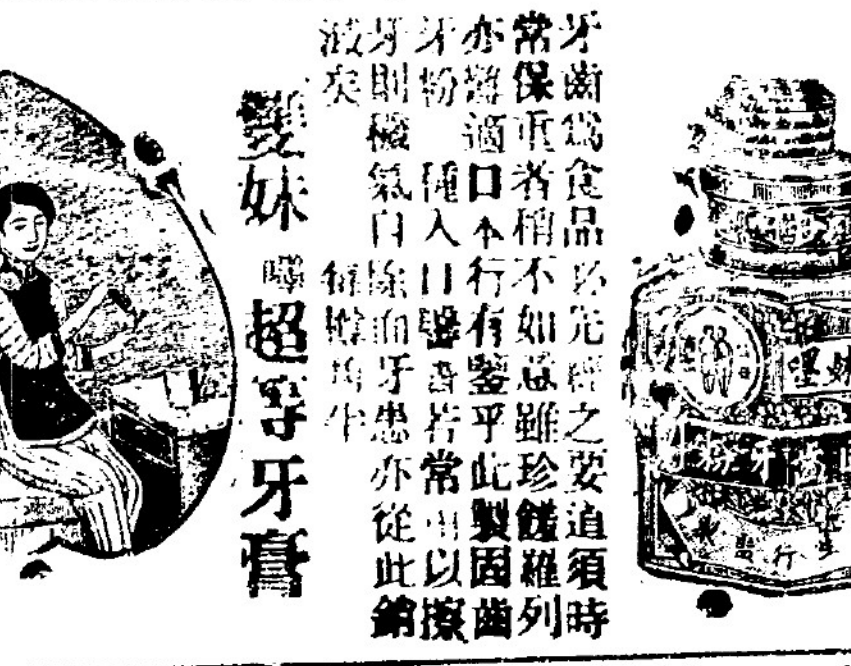 牙齒爲食品必先經之要道須時
常保重者稍不如意雖珍饈羅列
亦難適口本行有鑒乎此製固齒
牙粉一種入口馨香若常用以擦
牙則穢氣自除而牙患亦從此銷
滅矣 每樽角半
雙妹嚜超等牙膏
妹嚜
齒牙粉
生行監